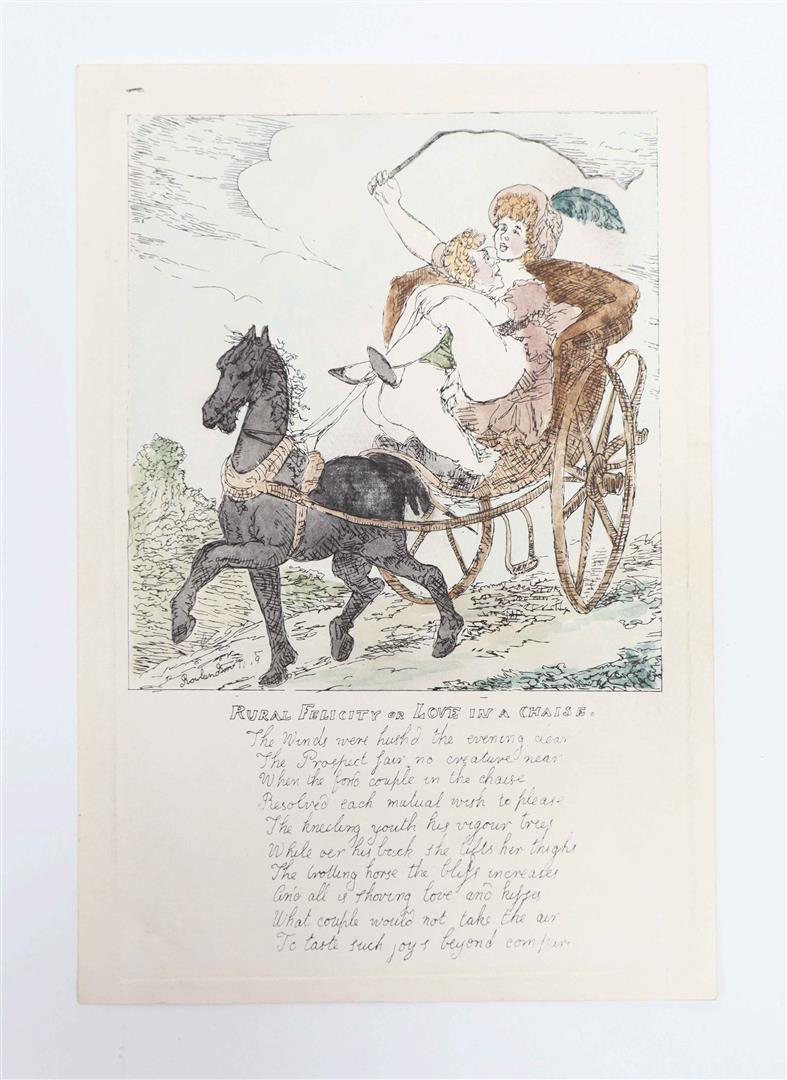 Rowlandson
RURAL FELICITY OR LOVE IN A CHAISE.
The Winds were hush'd the evening clear
The Prospect fair no creature near
When the fond couple in the chaise
Resolved each mutual wish to please
The kneeling youth his vigour tries
While oer his back she lifts her thighs
The trotting horse the bliss increases
And all is shoving love and kisses
What couple would not take the air
To taste such joys beyond compare